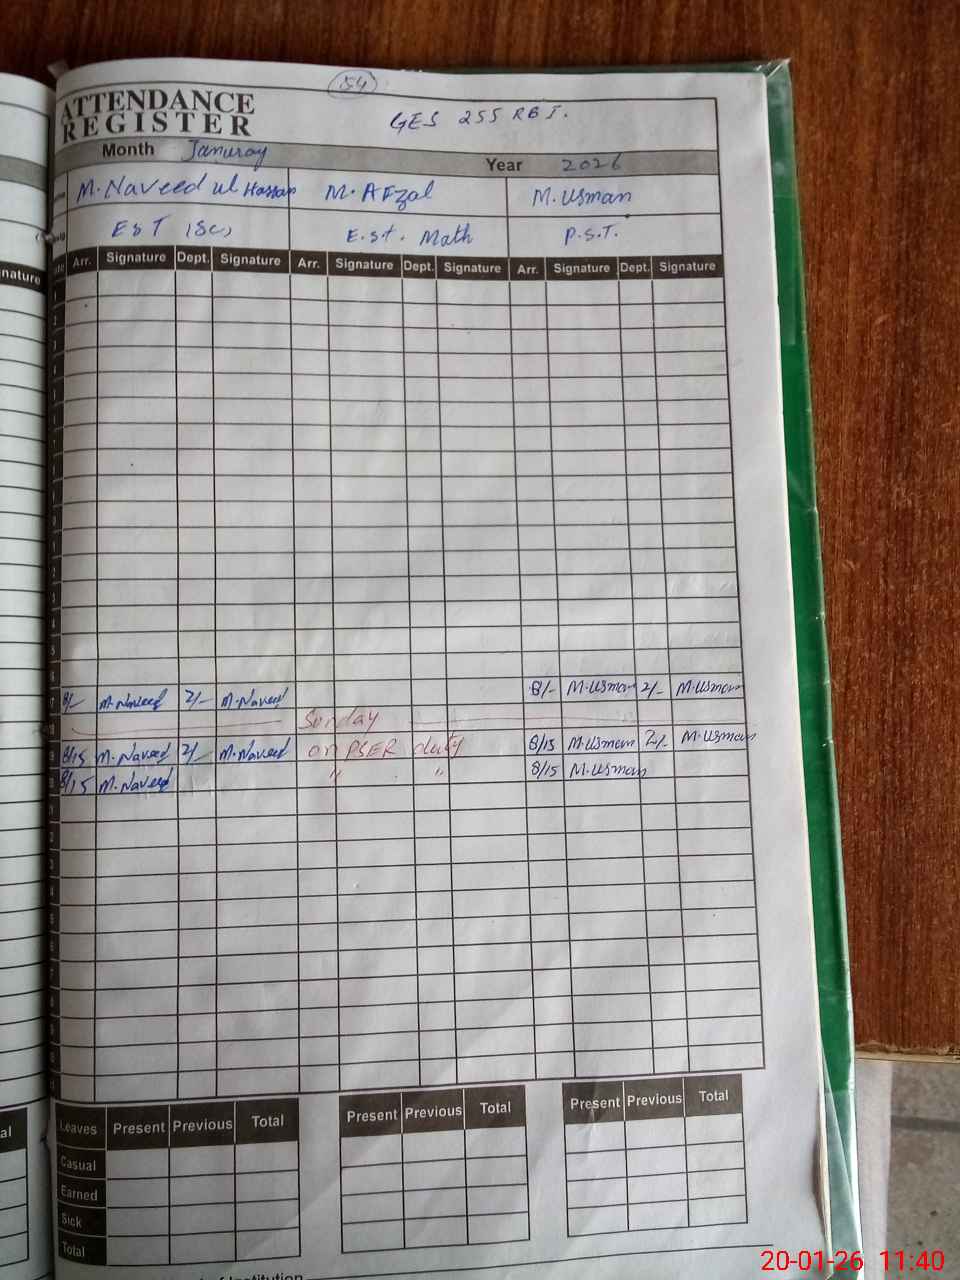 54
ATTENDANCE
REGISTER
GES 255 RB I.
Month Januray Year 2026
M. Naveed ul Hassan M. AFzal M. Usman
EST (Sc) E.st. Math P.S.T.
nature Arr. Signature Dept. Signature Arr. Signature Dept. Signature Arr. Signature Dept. Signature
8/- M.Naveed 2/- M.Naveed 8/- M.Usman 2/- M.Usman
Sunday
8/15 M.Naveed 2/- M.Naveed on PSER duty 8/15 M.Usman 2/- M.Usman
8/15 M.Naveed " " 8/15 M.Usman
Leaves Present Previous Total Present Previous Total Present Previous Total
Casual
Earned
Sick
Total
al
of Institution
20-01-26 11:40